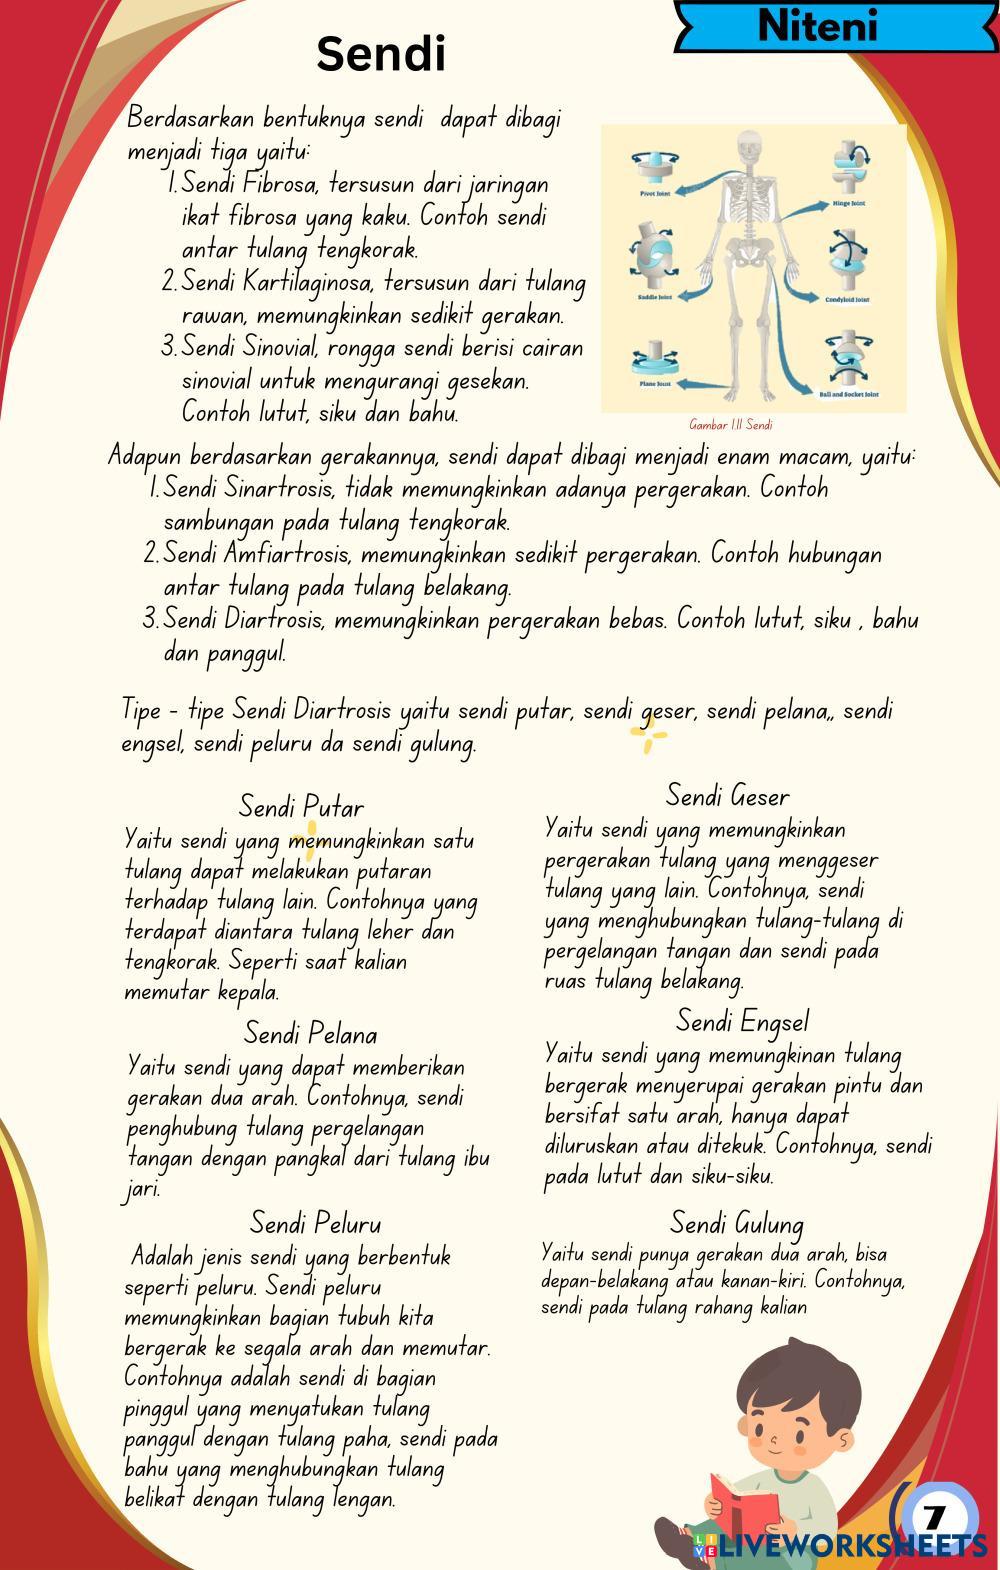 Niteni
Sendi
Berdasarkan bentuknya sendi dapat dibagi
menjadi tiga yaitu:
1. Sendi Fibrosa, tersusun dari jaringan
ikat fibrosa yang kaku. Contoh sendi
antar tulang tengkorak.
2. Sendi Kartilaginosa, tersusun dari tulang
rawan, memungkinkan sedikit gerakan.
3. Sendi Sinovial, rongga sendi berisi cairan
sinovial untuk mengurangi gesekan.
Contoh lutut, siku dan bahu.
Pivot Joint
Hinge Joint
Saddle Joint
Condyloid Joint
Plane Joint
Ball and Socket Joint
Gambar 1.11 Sendi
Adapun berdasarkan gerakannya, sendi dapat dibagi menjadi enam macam, yaitu:
1. Sendi Sinartrosis, tidak memungkinkan adanya pergerakan. Contoh
sambungan pada tulang tengkorak.
2. Sendi Amfiartrosis, memungkinkan sedikit pergerakan. Contoh hubungan
antar tulang pada tulang belakang.
3. Sendi Diartrosis, memungkinkan pergerakan bebas. Contoh lutut, siku , bahu
dan panggul.
Tipe - tipe Sendi Diartrosis yaitu sendi putar, sendi geser, sendi pelana,, sendi
engsel, sendi peluru da sendi gulung.
Sendi Putar
Yaitu sendi yang memungkinkan satu
tulang dapat melakukan putaran
terhadap tulang lain. Contohnya yang
terdapat diantara tulang leher dan
tengkorak. Seperti saat kalian
memutar kepala.
Sendi Geser
Yaitu sendi yang memungkinkan
pergerakan tulang yang menggeser
tulang yang lain. Contohnya, sendi
yang menghubungkan tulang-tulang di
pergelangan tangan dan sendi pada
ruas tulang belakang.
Sendi Pelana
Yaitu sendi yang dapat memberikan
gerakan dua arah. Contohnya, sendi
penghubung tulang pergelangan
tangan dengan pangkal dari tulang ibu
jari.
Sendi Engsel
Yaitu sendi yang memungkinan tulang
bergerak menyerupai gerakan pintu dan
bersifat satu arah, hanya dapat
diluruskan atau ditekuk. Contohnya, sendi
pada lutut dan siku-siku.
Sendi Peluru
Adalah jenis sendi yang berbentuk
seperti peluru. Sendi peluru
memungkinkan bagian tubuh kita
bergerak ke segala arah dan memutar.
Contohnya adalah sendi di bagian
pinggul yang menyatukan tulang
panggul dengan tulang paha, sendi pada
bahu yang menghubungkan tulang
belikat dengan tulang lengan.
Sendi Gulung
Yaitu sendi punya gerakan dua arah, bisa
depan-belakang atau kanan-kiri. Contohnya,
sendi pada tulang rahang kalian
7
LIVE LIVEWORKSHEETS